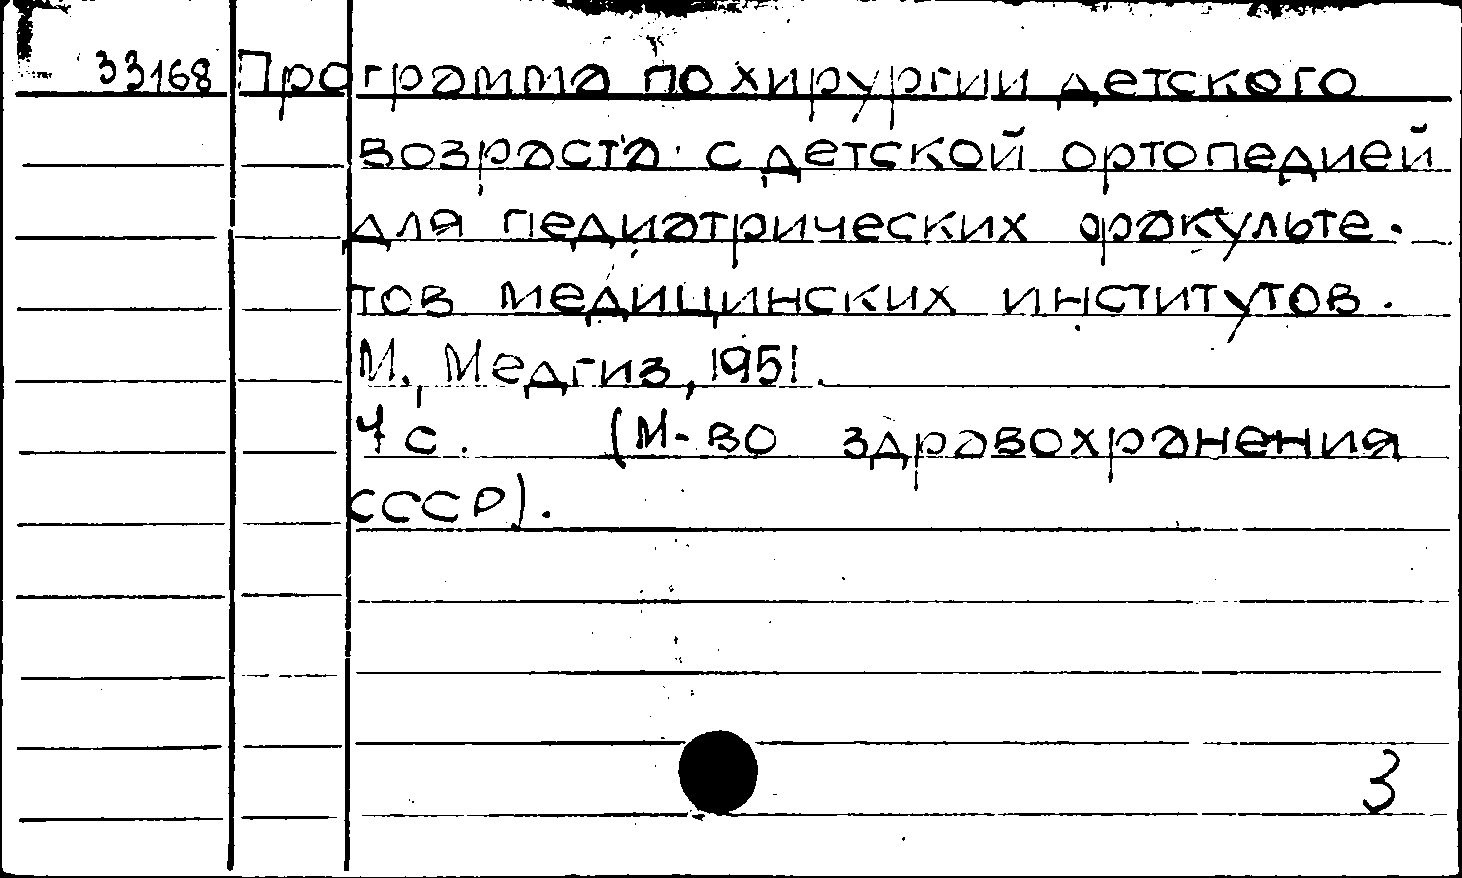 33168 Программа по хирургии детского
возраста с детской ортопедией
для педиатрических факульте-
тов медицинских институтов.
М., Медгиз, 1951.
4 с. (М-во здравохранения
СССР).
3